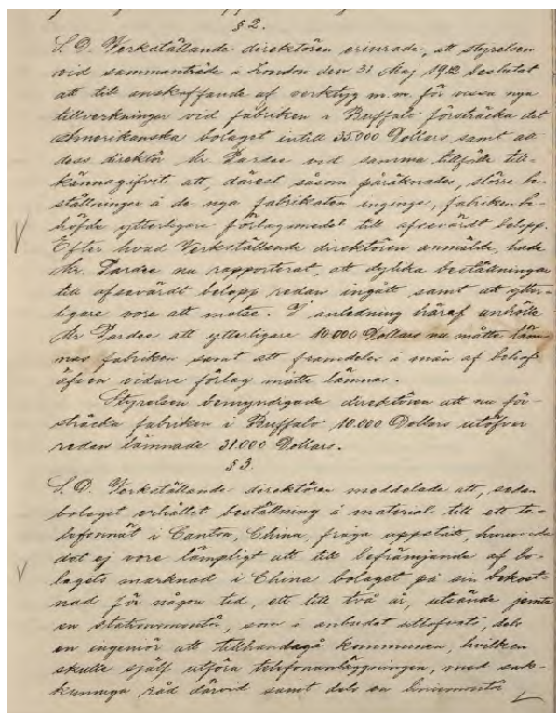 § 2.
S. D. Verkställande direktören erinrade, att styrelsen
vid sammanträde i London den 31 Maj 1912 beslutat
att till anskaffande af verktyg m.m. för vissa nya
tillverkningar vid fabriken i Buffalo försträcka det
Amerikanska bolaget intill 35.000 Dollars samt att
dess direktör Mr Pardee vid samma tillfälle till-
kännagifvit att, därest såsom påräknades, större be-
ställningar å de nya fabrikaten inginge, fabriken be-
höfde ytterligare förlagsmedel till afsevärdt belopp.
Efter hvad Verkställande direktören anmälde, hade
Mr. Pardee nu rapporterat, att dylika beställningar
till afsevärdt belopp redan ingått samt att ytter-
ligare vore att motse. I anledning häraf anhölle
Mr Pardee att ytterligare 10.000 Dollars nu måtte läm-
nas fabriken samt att framdeles i mån af behof
äfven vidare förlag måtte lämnas.
Styrelsen bemyndigade direktören att nu för-
sträcka fabriken i Buffalo 10.000 Dollars utöfver
redan lämnade 31.000 Dollars.
§ 3.
S. D. Verkställande direktören meddelade att, sedan
bolaget erhållit beställning å material till ett te-
lefonnät i Canton, China, fråga uppstått, huruvida
det ej vore lämpligt att till befrämjande af bo-
lagets marknad i China bolaget på sin bekost-
nad för någon tid, ett till två år, utsände jemte
en stationsmontör, som i anbudet utlofvats, dels
en ingeniör att tillhandagå kommunen, hvilken
skulle själf utföra telefonanläggningen, med sak-
kunniga råd därvid samt dels en linjemontör